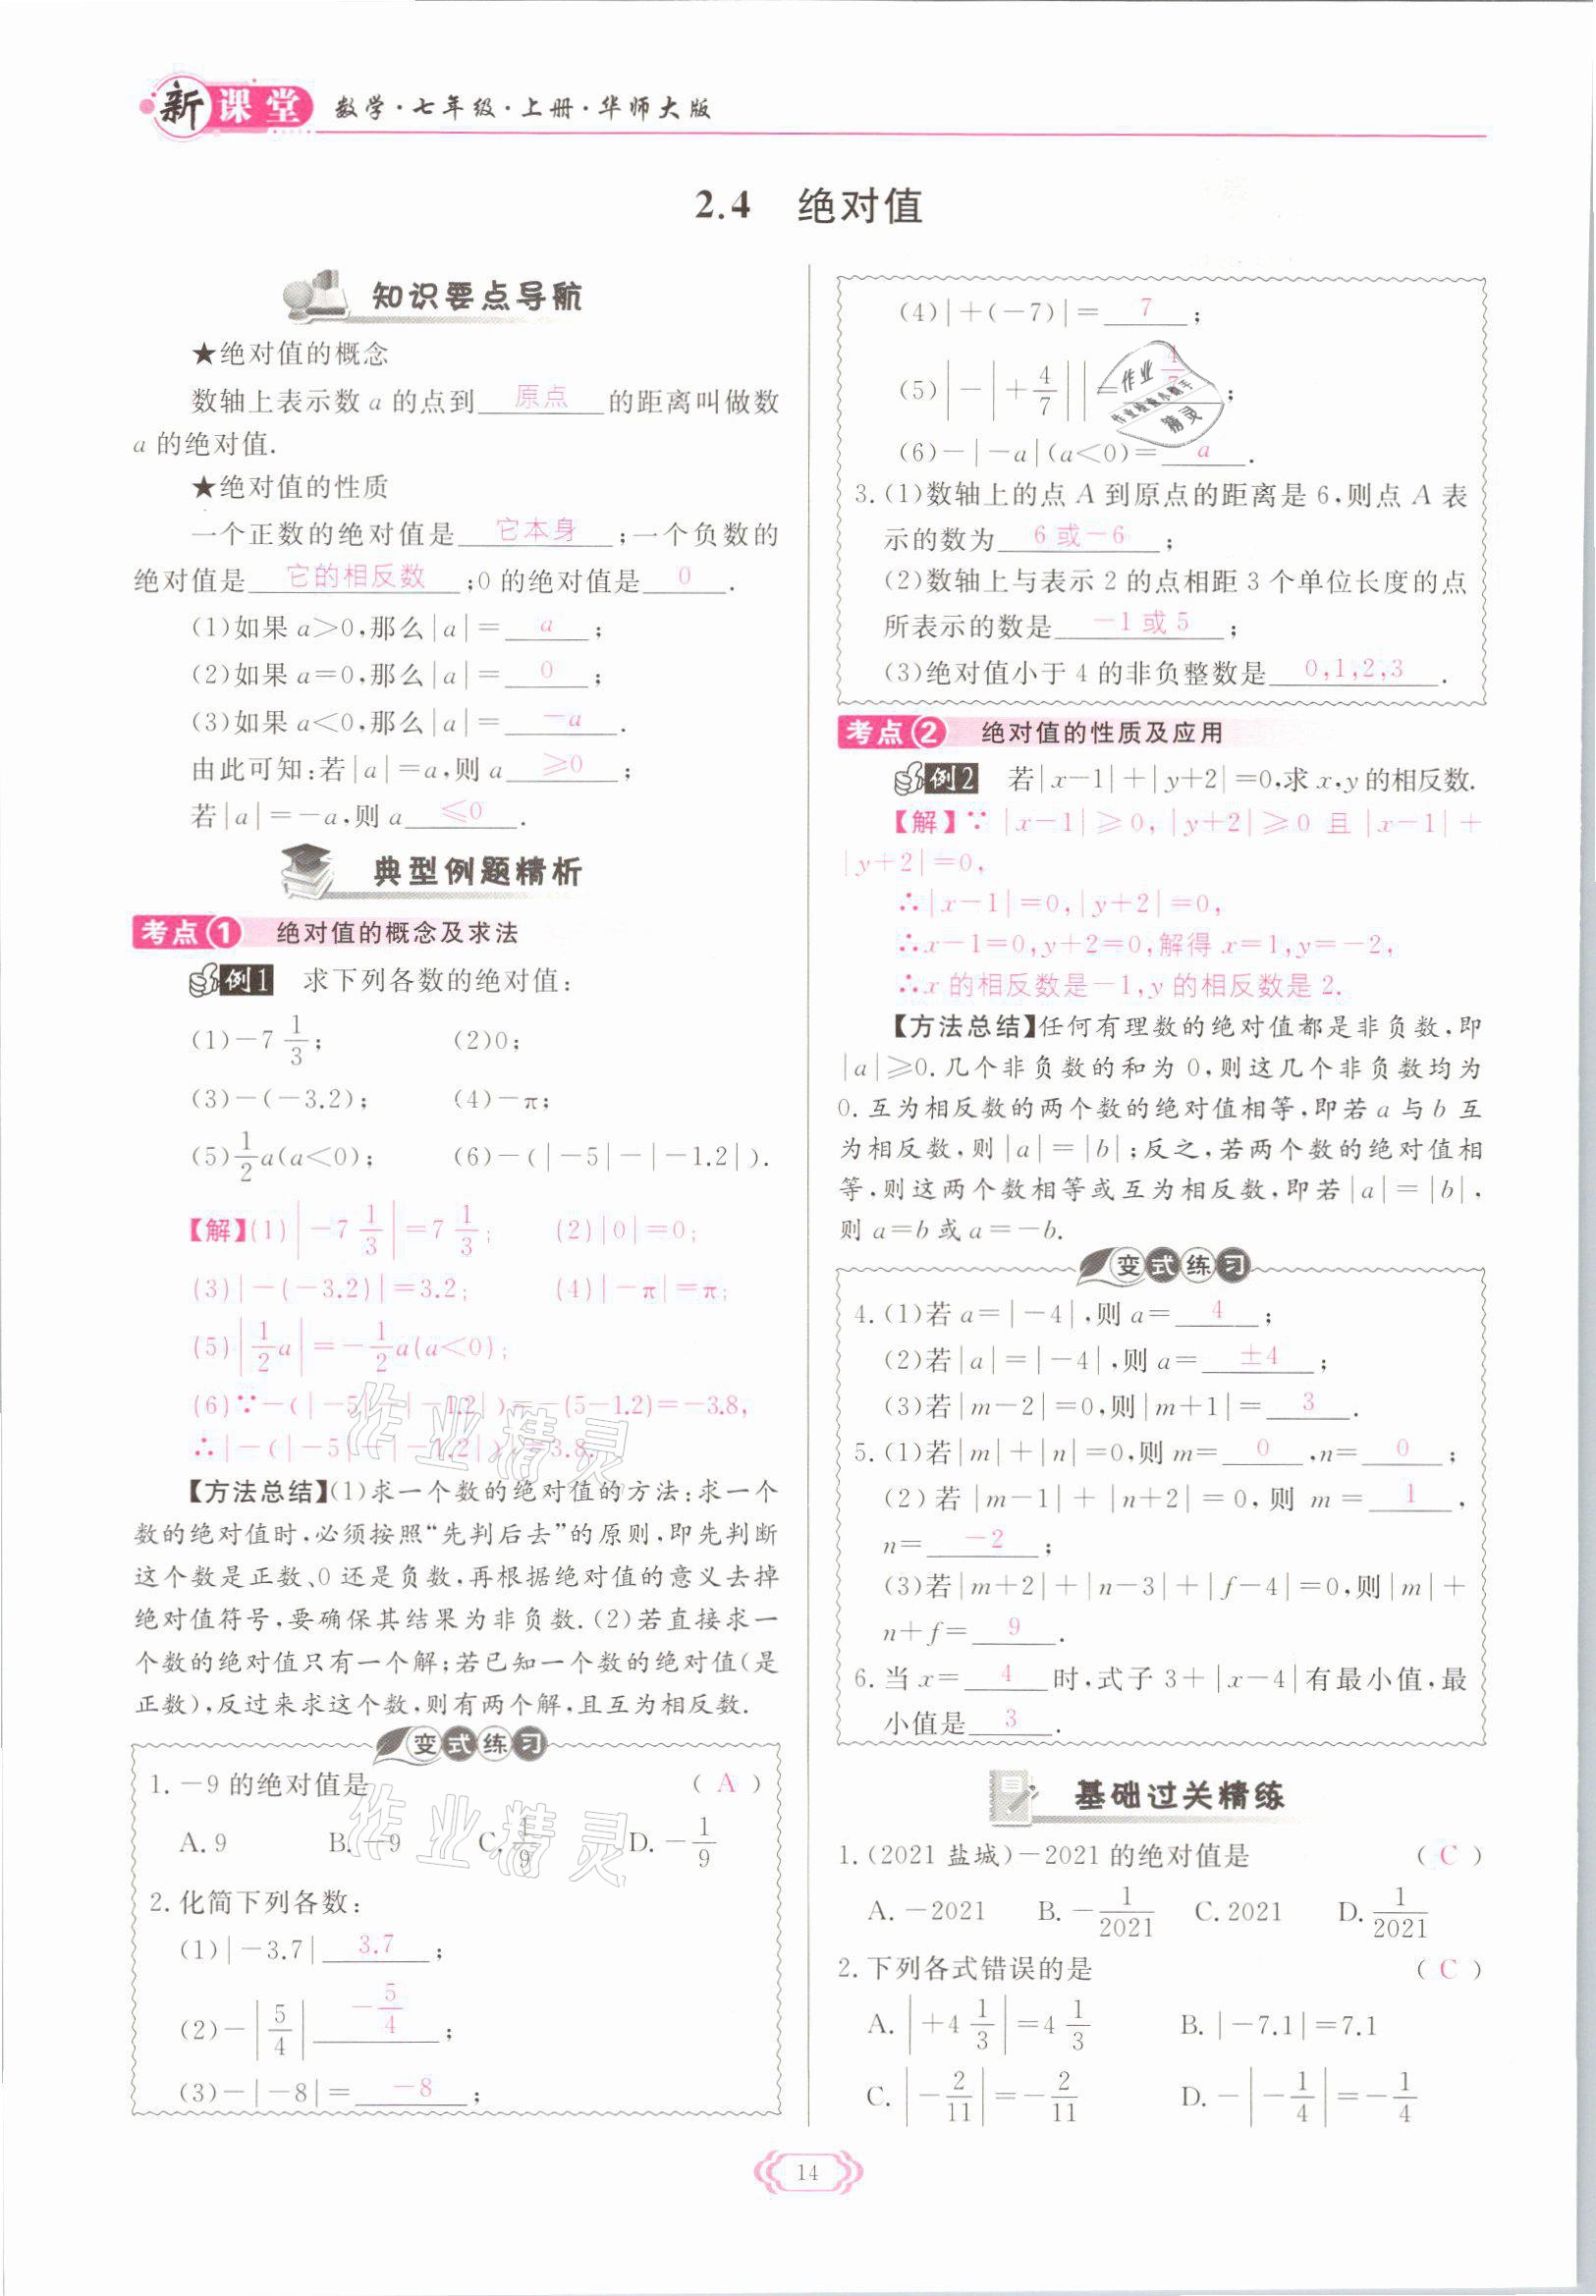 新课堂 数学·七年级·上册·华师大版
2.4 绝对值
知识要点导航
★绝对值的概念
数轴上表示数 a 的点到 原点 的距离叫做数
a 的绝对值.
★绝对值的性质
一个正数的绝对值是 它本身 ;一个负数的
绝对值是 它的相反数 ;0 的绝对值是 0 .
(1)如果 a>0,那么|a|= a ;
(2)如果 a=0,那么|a|= 0 ;
(3)如果 a<0,那么|a|= -a .
由此可知:若|a|=a,则 a ≥0 ;
若|a|=-a,则 a ≤0 .
典型例题精析
考点1 绝对值的概念及求法
例1 求下列各数的绝对值:
(1)-7 1/3; (2)0;
(3)-(-3.2); (4)-π;
(5)1/2 a(a<0); (6)-(|-5|-|-1.2|).
【解】(1)|-7 1/3|=7 1/3; (2)|0|=0;
(3)|-(-3.2)|=3.2; (4)|-π|=π;
(5)|1/2 a|=-1/2 a(a<0);
(6)∵-(|-5|-|-1.2|)=-(5-1.2)=-3.8,
∴|-(|-5|-|-1.2|)|=3.8.
【方法总结】(1)求一个数的绝对值的方法:求一个
数的绝对值时,必须按照“先判后去”的原则,即先判断
这个数是正数、0 还是负数,再根据绝对值的意义去掉
绝对值符号,要确保其结果为非负数.(2)若直接求一
个数的绝对值只有一个解;若已知一个数的绝对值(是
正数),反过来求这个数,则有两个解,且互为相反数.
变式练习
1. -9 的绝对值是 ( A )
A. 9 B. -9 C. 1/9 D. -1/9
2. 化简下列各数:
(1)|-3.7| 3.7 ;
(2)-|5/4| -5/4 ;
(3)-|-8|= -8 ;
(4)|+(-7)|= 7 ;
(5)|-|+4/7||= 4/7 ;
(6)-|-a|(a<0)= a .
3. (1)数轴上的点 A 到原点的距离是 6,则点 A 表
示的数为 6 或-6 ;
(2)数轴上与表示 2 的点相距 3 个单位长度的点
所表示的数是 -1 或 5 ;
(3)绝对值小于 4 的非负整数是 0,1,2,3 .
考点2 绝对值的性质及应用
例2 若|x-1|+|y+2|=0,求 x,y 的相反数.
【解】∵|x-1|≥0,|y+2|≥0 且|x-1|+
|y+2|=0,
∴|x-1|=0,|y+2|=0,
∴x-1=0,y+2=0,解得 x=1,y=-2,
∴x 的相反数是-1,y 的相反数是 2.
【方法总结】任何有理数的绝对值都是非负数,即
|a|≥0.几个非负数的和为 0,则这几个非负数均为
0.互为相反数的两个数的绝对值相等,即若 a 与 b 互
为相反数,则|a|=|b|;反之,若两个数的绝对值相
等,则这两个数相等或互为相反数,即若|a|=|b|,
则 a=b 或 a=-b.
变式练习
4. (1)若 a=|-4|,则 a= 4 ;
(2)若|a|=|-4|,则 a= ±4 ;
(3)若|m-2|=0,则|m+1|= 3 .
5. (1)若|m|+|n|=0,则 m= 0 ,n= 0 ;
(2)若|m-1|+|n+2|=0,则 m= 1 ,
n= -2 ;
(3)若|m+2|+|n-3|+|f-4|=0,则|m|+
n+f= 9 .
6. 当 x= 4 时,式子 3+|x-4|有最小值,最
小值是 3 .
基础过关精练
1. (2021 盐城)-2021 的绝对值是 ( C )
A. -2021 B. -1/2021 C. 2021 D. 1/2021
2. 下列各式错误的是 ( C )
A. |+4 1/3|=4 1/3 B. |-7.1|=7.1
C. |-2/11|=-2/11 D. -|-1/4|=-1/4
14
作业精灵
作业精灵
作业
作业检查小能手
精灵